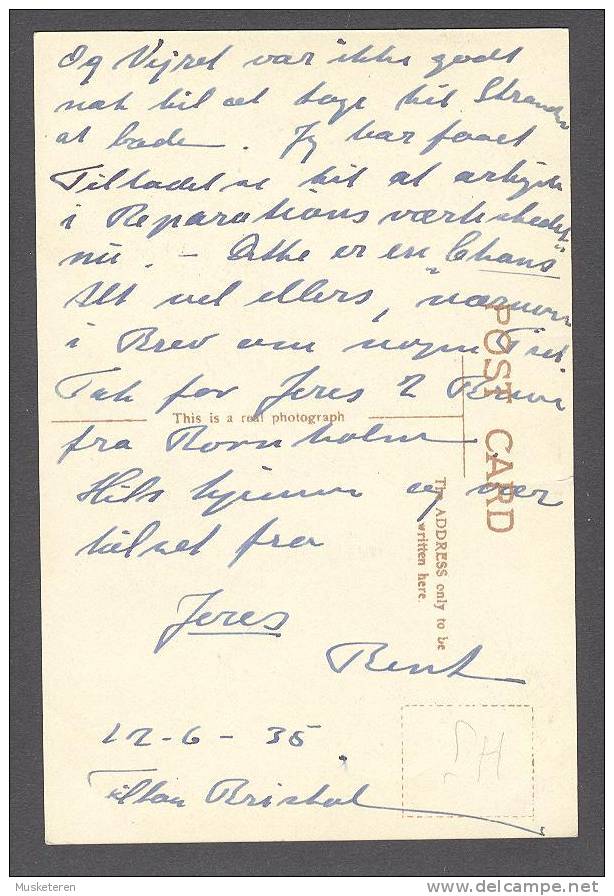 Og Vejret var ikke godt
nok til at tage til Stranden
at bade. Jeg har faaet
Tilladelse til at arbejde
i Reparationsværksted
nu. - Dette er en "Chans"
Alt vel ellers, nærmere
i Brev om nogen Tid.
Tak for Jeres 2 Breve
This is a real photograph
fra Bornholm
Hils hjemme og vær
hilset fra
Jeres
Bent
12-6-35.
Filton Bristol
POST CARD
The ADDRESS only to be
written here.
Musketeren
delcampe.net